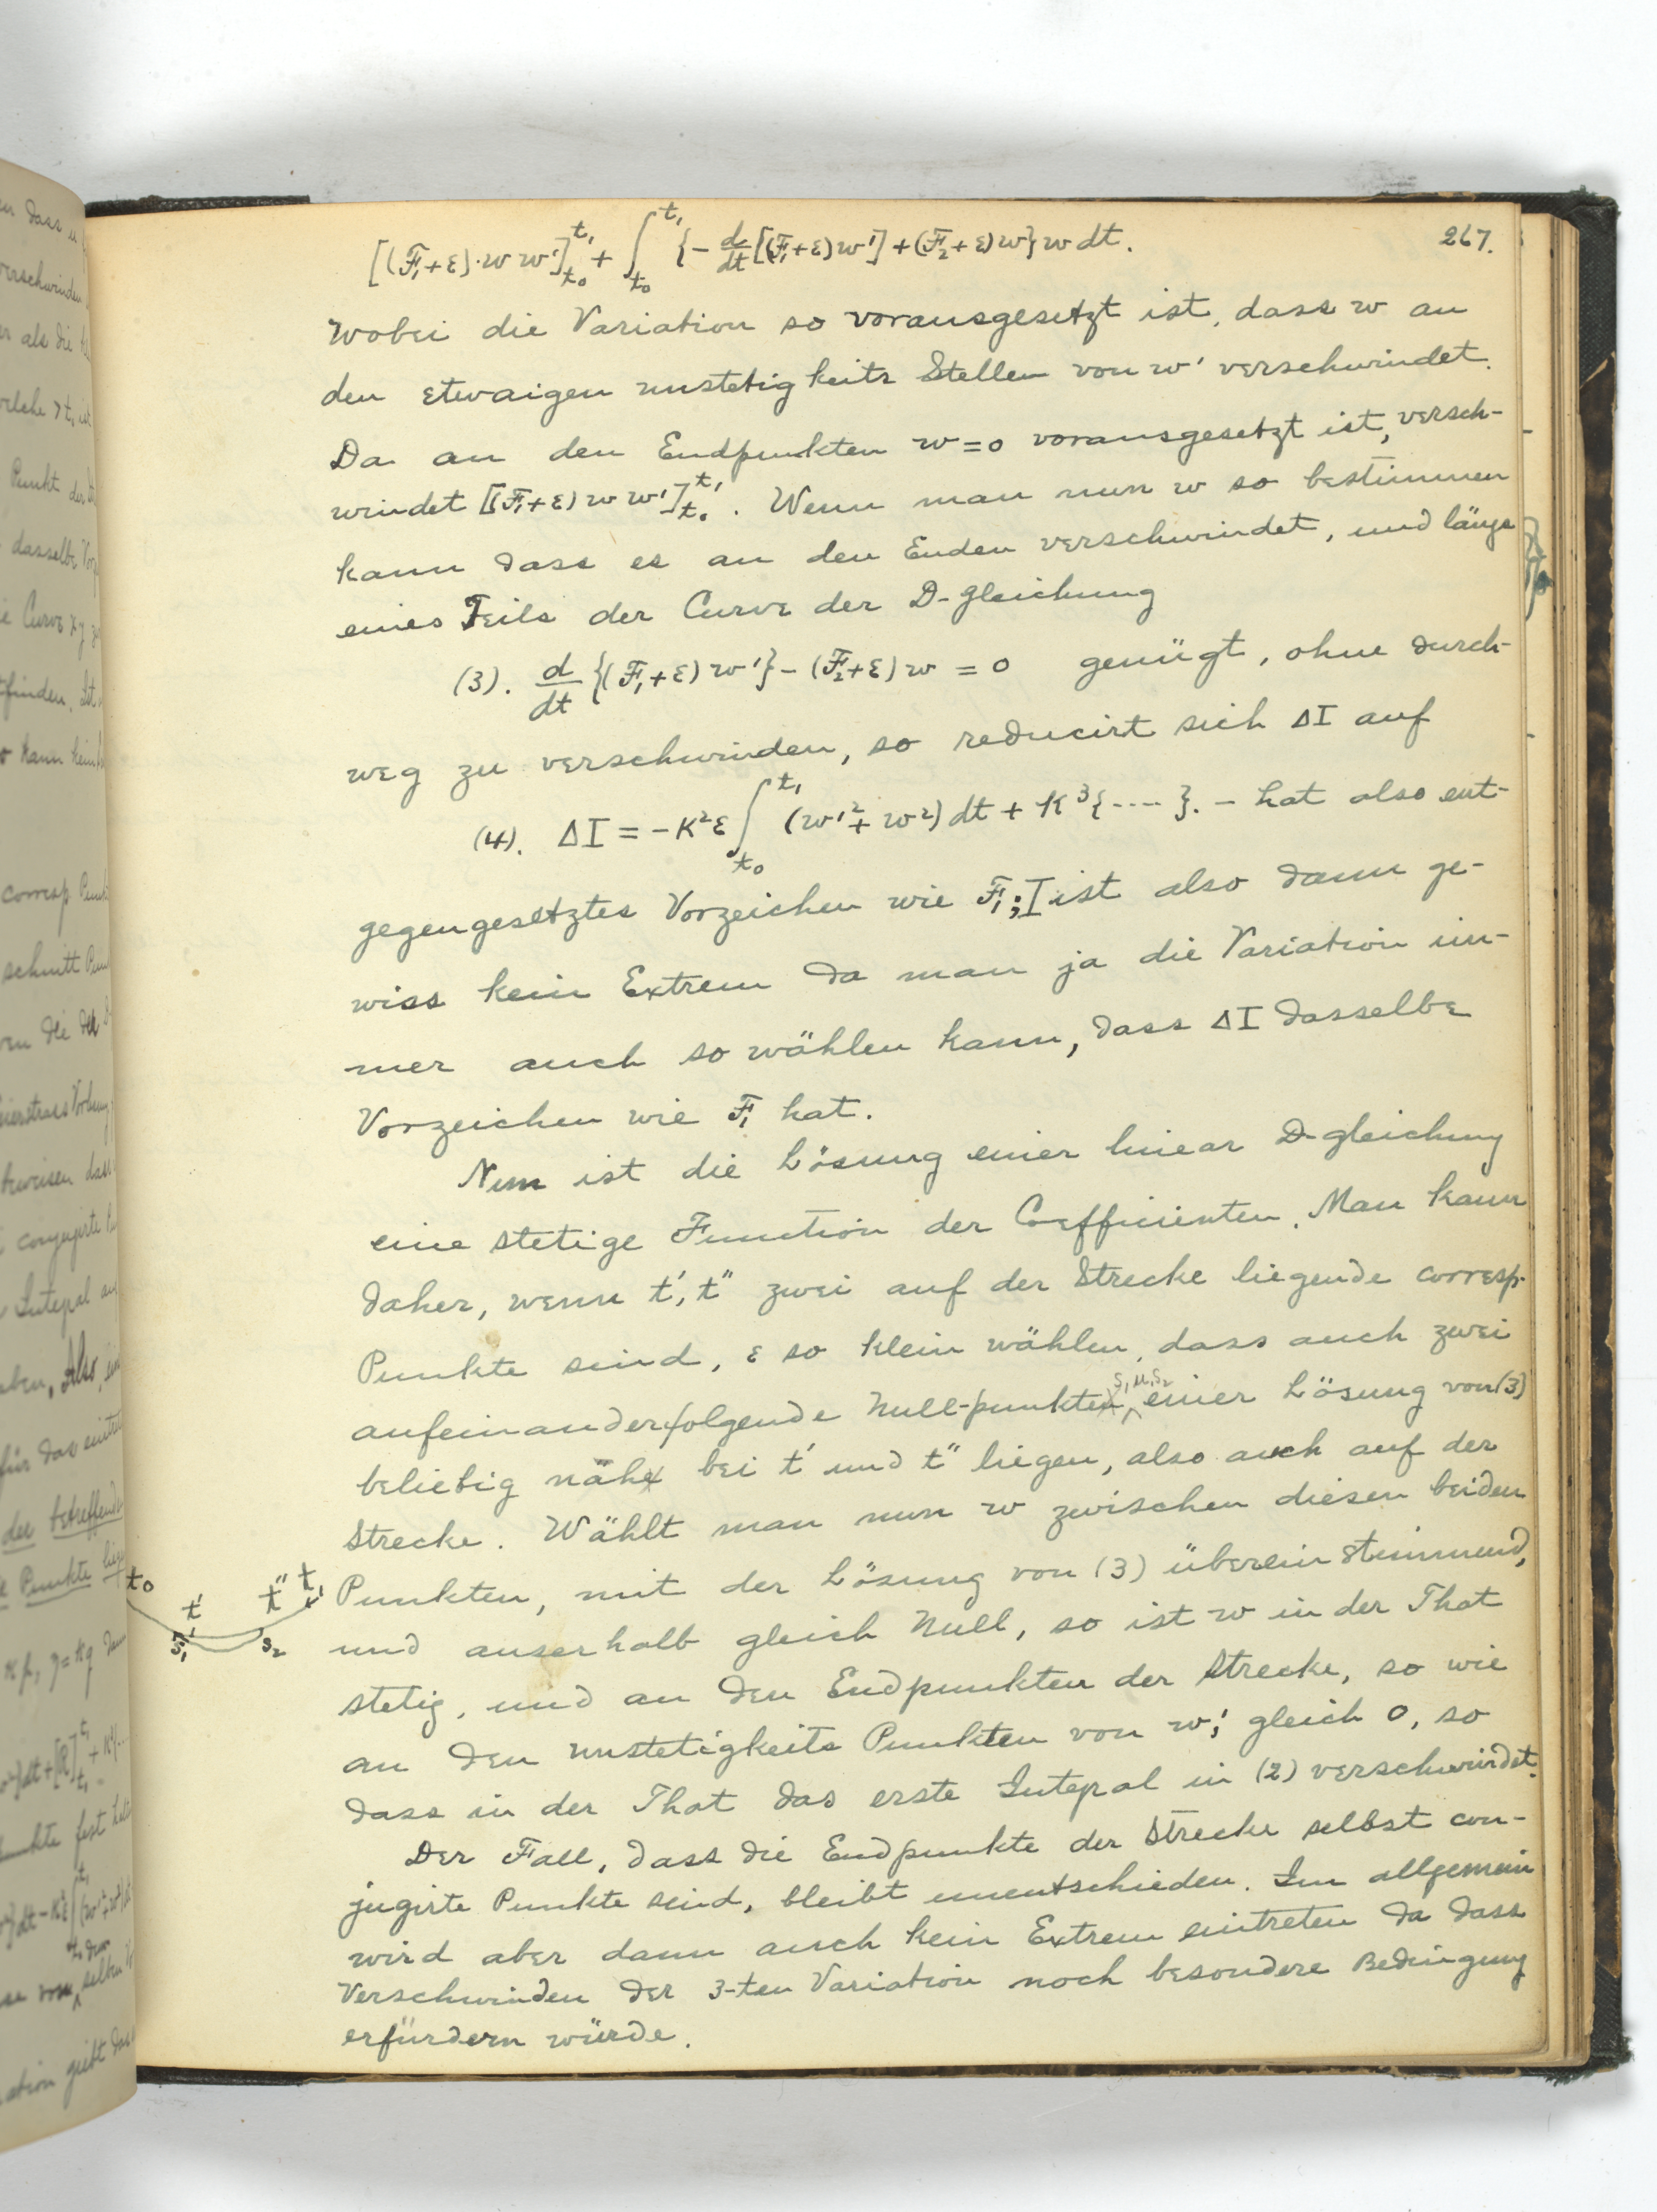 267.
[(F₁+ε)·w w']_{t₀}^{t₁} + ∫_{t₀}^{t₁} {- d/dt[(F₁+ε)w'] + (F₂+ε)w} w dt.
wobei die Variation so vorausgesetzt ist, dass w an
den etwaigen unstetigkeits Stellen von w' verschwindet.
Da an den Endpunkten w=0 vorausgesetzt ist, versch-
windet [(F₁+ε) w w']_{t₀}^{t₁}. Wenn man nun w so bestimmen
kann dass es an den Enden verschwindet, und längs
eines Teils der Curve der D-gleichung
(3). d/dt {(F₁+ε) w'} - (F₂+ε) w = 0 genügt, ohne durch-
weg zu verschwinden, so reducirt sich ΔI auf
(4). ΔI = -K²ε ∫_{t₀}^{t₁} (w'² + w²) dt + K³{----}. - hat also ent-
gegengesetztes Vorzeichen wie F₁; I ist also dann ge-
wiss kein Extrem da man ja die Variation im-
mer auch so wählen kann, dass ΔI dasselbe
Vorzeichen wie F₁ hat.
Nun ist die Lösung einer linear D-gleichung
eine stetige Function der Coefficienten. Man kann
daher, wenn t', t" zwei auf der Strecke liegende corresp.
Punkte sind, ε so klein wählen, dass auch zwei
aufeinanderfolgende Null-punkte s₁ u. s₂ einer Lösung von (3)
beliebig nähe bei t' und t" liegen, also auch auf der
Strecke. Wählt man nun w zwischen diesen beiden
Punkten, mit der Lösung von (3) überein stimmend,
und auserhalb gleich Null, so ist w in der That
stetig, und an den Endpunkten der Strecke, so wie
an den unstetigkeits Punkten von w', gleich 0, so
dass in der That das erste Integral in (2) verschwindet.
Der Fall, dass die Endpunkte der Strecke selbst con-
jugirte Punkte sind, bleibt unentschieden. Im allgemein
wird aber dann auch kein Extrem eintreten da dass
Verschwinden der 3-ten Variation noch besondere Bedingung
erfürdern würde.
t₀ t' t" t₁
s₁ s₂